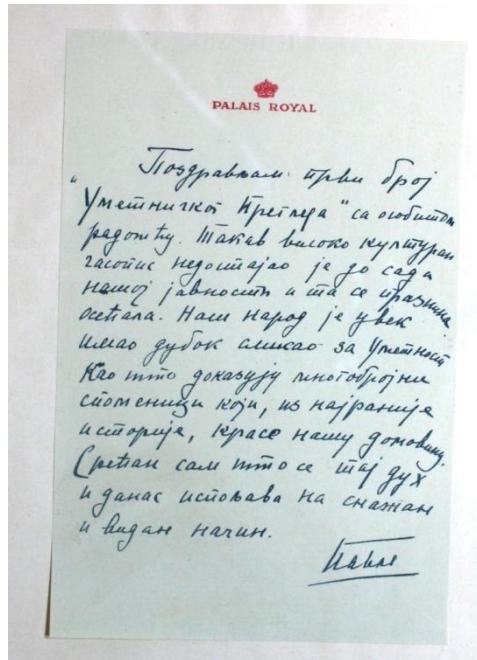 PALAIS ROYAL
Поздрављам први број
"Уметничког Прегледа" са особитом
радошћу. Такав високо културан
часопис недостајао је до сада
нашој јавности и та се празнина
осећала. Наш народ је увек
имао дубок смисао за Уметност
као што доказују многобројни
споменици који, из најраније
историје, красе нашу домовину.
Срећан сам што се тај дух
и данас испољава на снажан
и видан начин.
Павле